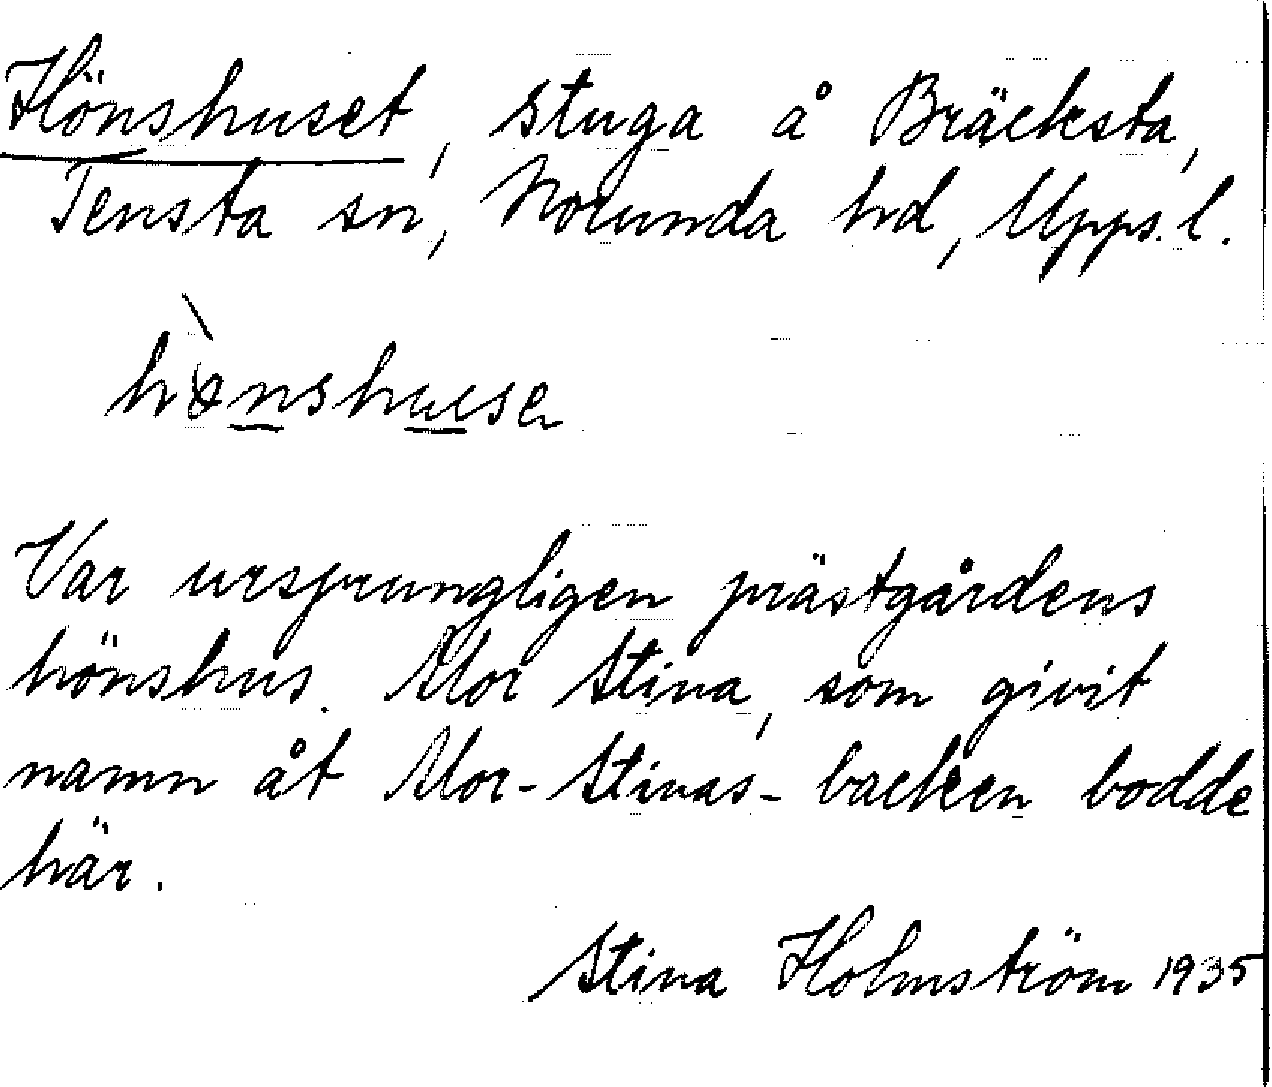 Hönshuset, stuga å Bräcksta,
Tensta sn, Norunda hd, Upps. l.
Var ursprungligen prästgårdens
hönshus. Mor Stina, som givit
namn åt Mor-Stinas-backen bodde
här.
Stina Holmström 1935